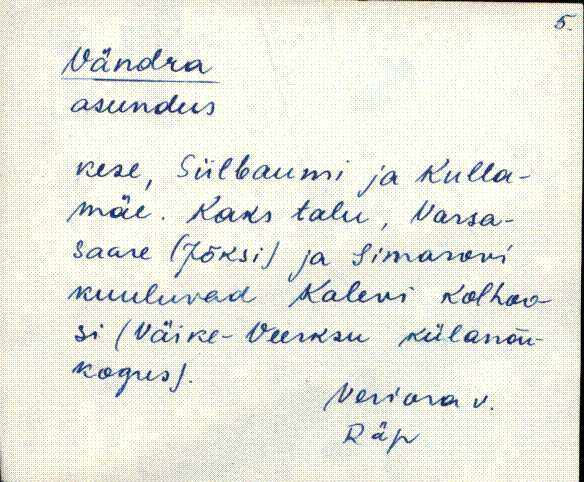 5.
Vändra
asundus
kese, Sülbaumi ja Kulla-
mäe. Kaks talu, Varsa-
saare (Jõksi) ja Simarovi
kuuluvad Kalevi kolhoo-
si (Väike-Veerksu külanõu-
kogus).
Veriora v.
Räp